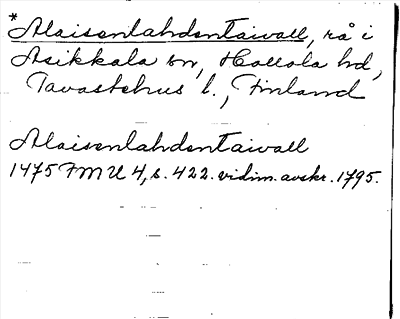 *Alaisenlahdentaivall, rå i
Asikkala sn, Hollola hd,
Tavastehus l., Finland
Alaisenlahdentaivall
1475 FMU 4, s. 422. vidim. avskr. 1795.